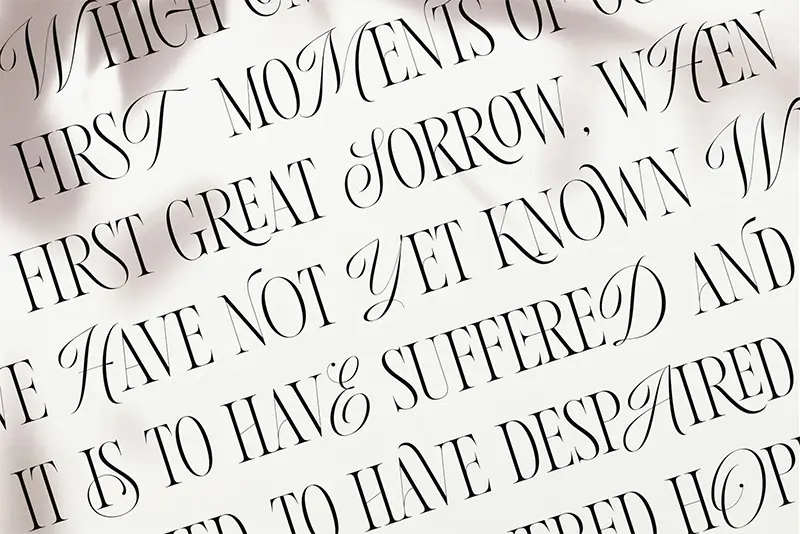 WHICH
FIRST MOMENTS OF
FIRST GREAT SORROW, WHEN
WE HAVE NOT YET KNOWN W
IT IS TO HAVE SUFFERED AND
TO HAVE DESPAIRED
HOPE